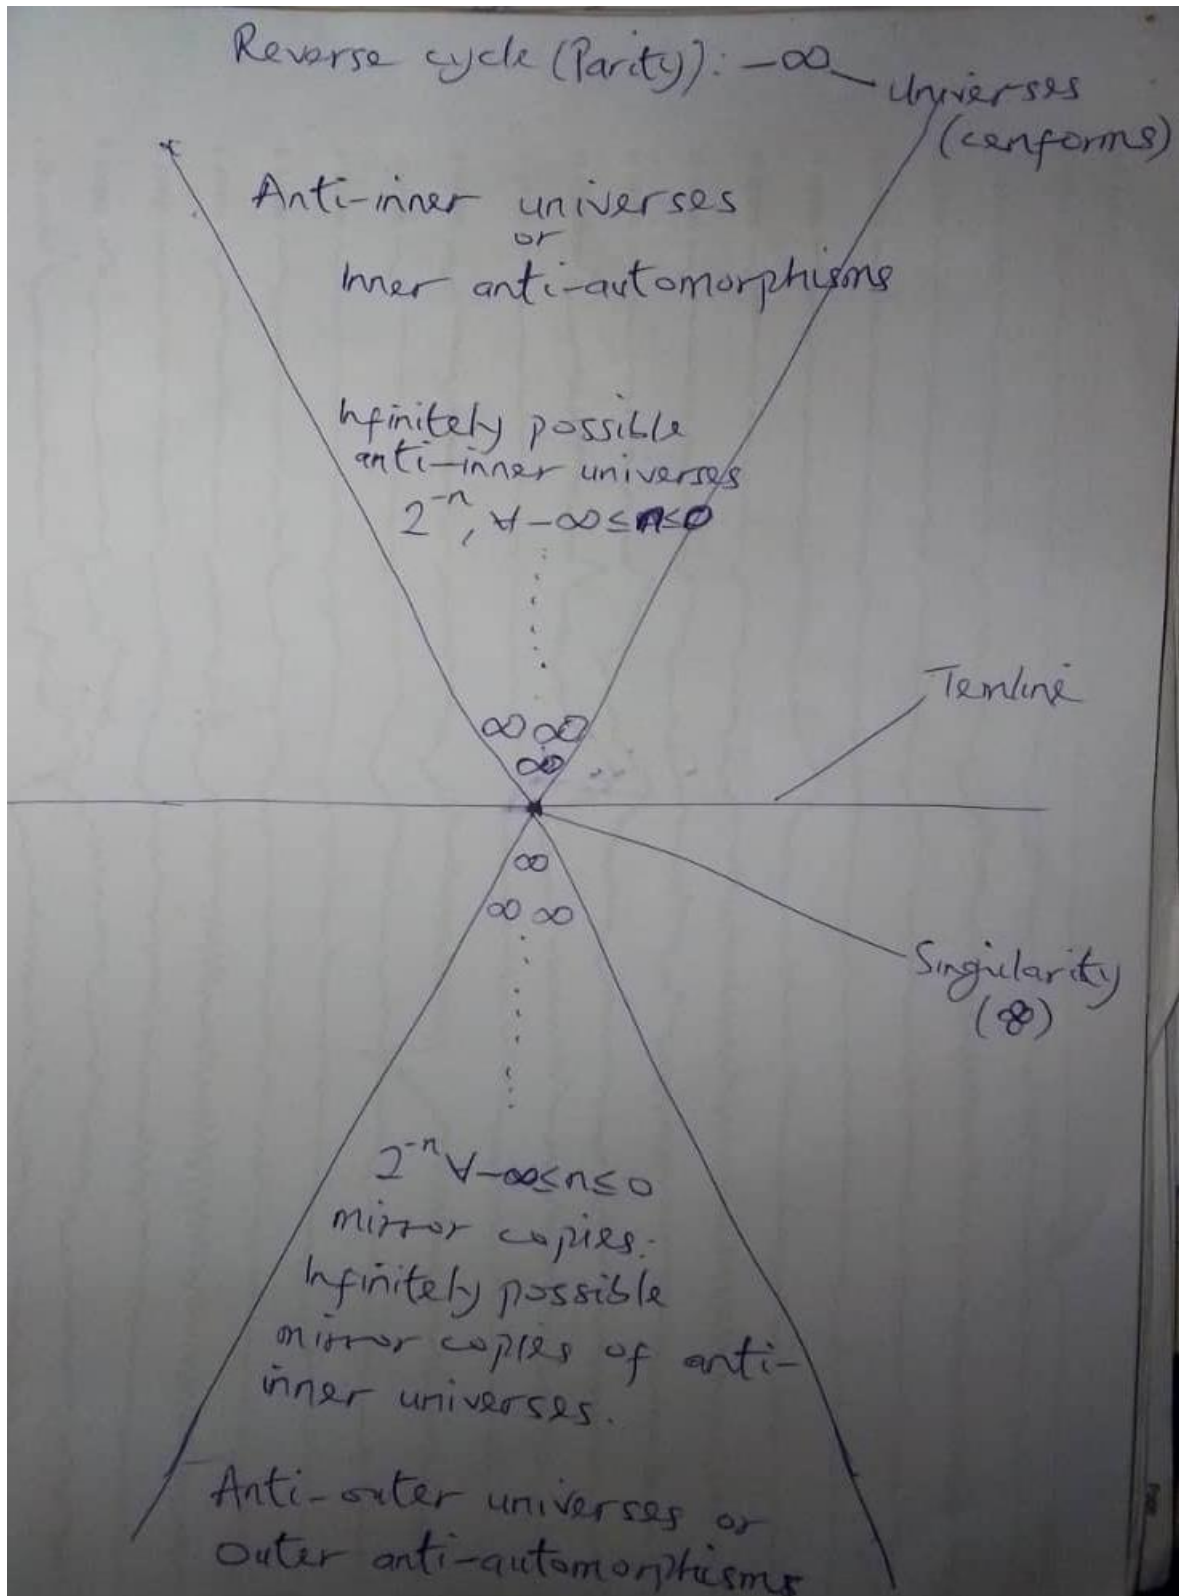 Reverse cycle (Parity): -∞
Universes
(cenforms)
Anti-inner universes
or
Inner anti-automorphisms
Infinitely possible
anti-inner universes
2⁻ⁿ, ∀ -∞ ≤ n ≤ 0
∞ ∞
∞
Temline
∞
∞ ∞
Singularity
2⁻ⁿ ∀ -∞ ≤ n ≤ 0
mirror copies.
Infinitely possible
mirror copies of anti-
inner universes.
Anti-outer universes or
outer anti-automorphisms